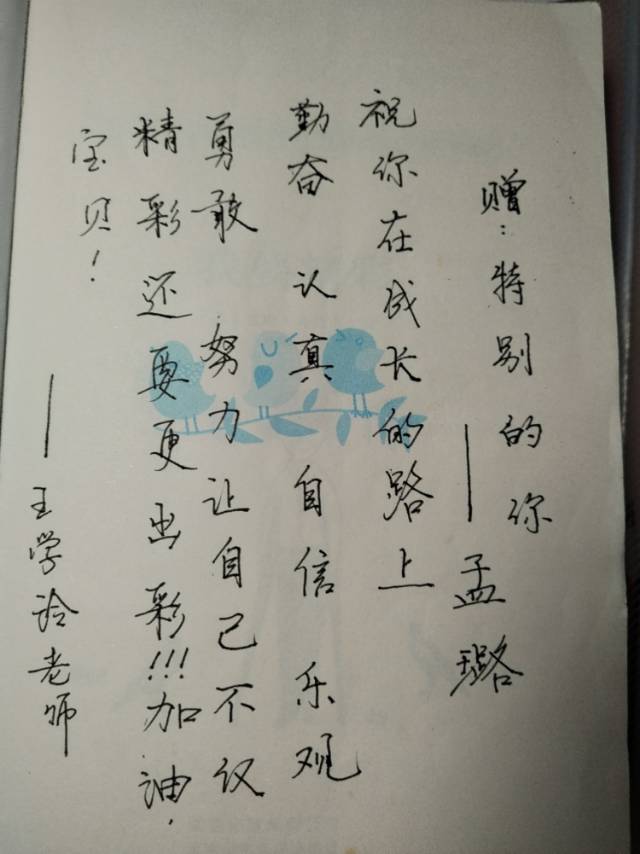 赠:特别的你
——孟璐
祝你在成长的路上
勤奋 认真 自信 乐观
勇敢 努力让自己不仅
精彩还要更出彩!!!加油,
宝贝!
——王学玲老师